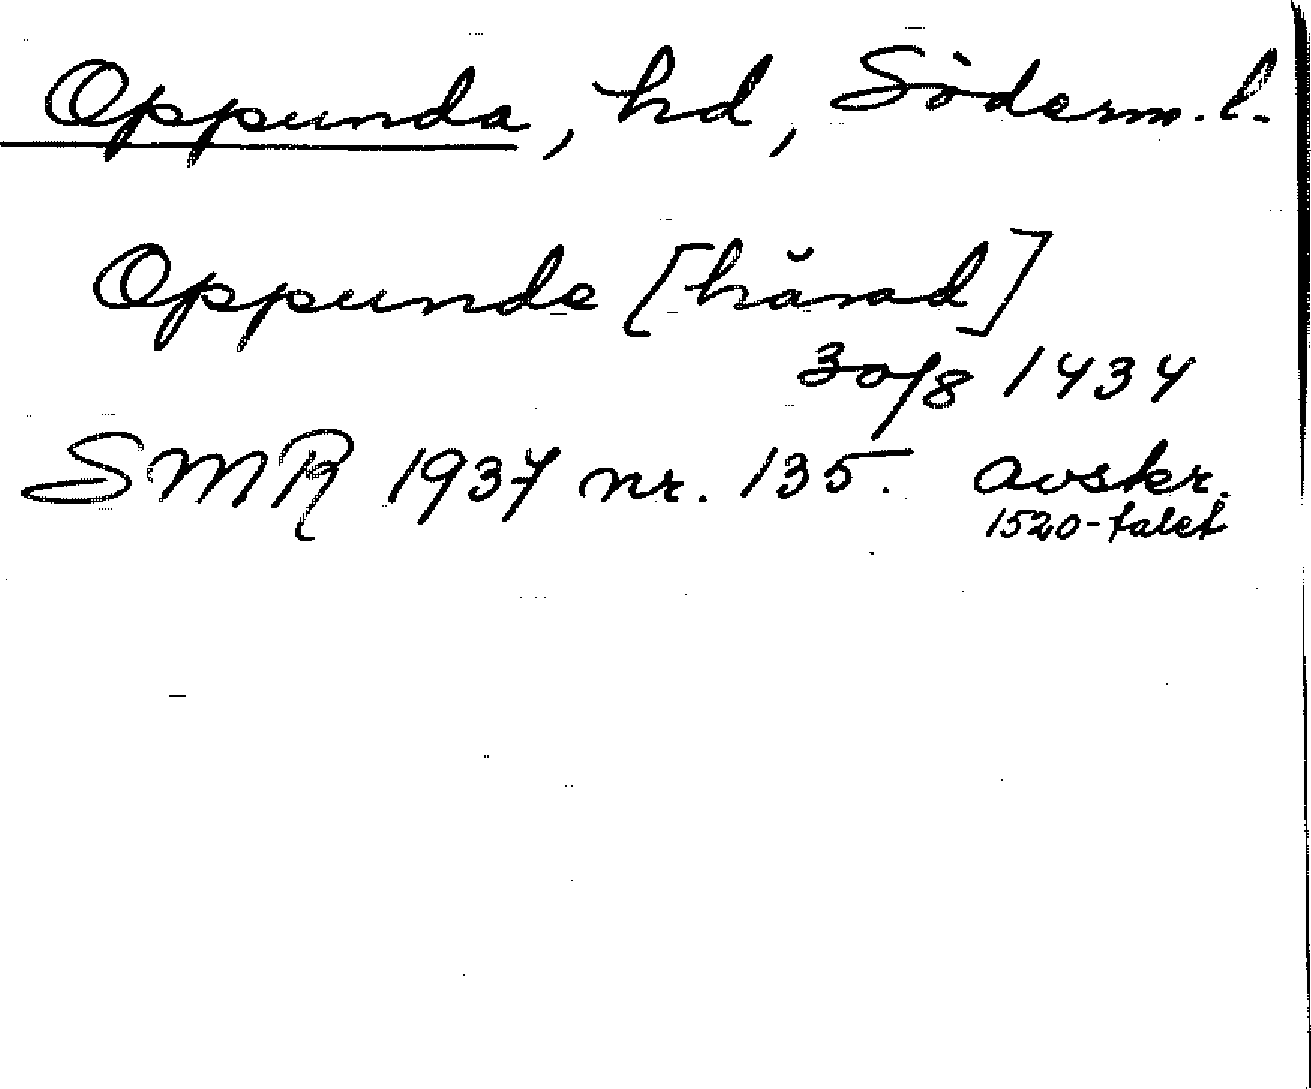 Oppunda, hd, Söderm. l.
Oppunde [hărad]
30/8 1434
SMR 1937 nr. 135. avskr.
1520-talet